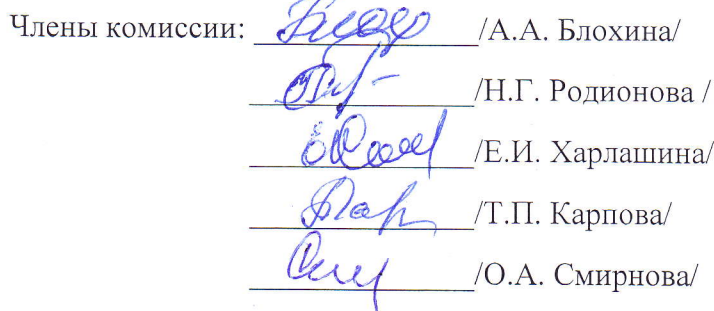 Члены комиссии: /А.А. Блохина/
/Н.Г. Родионова /
/Е.И. Харлашина/
/Т.П. Карпова/
/О.А. Смирнова/